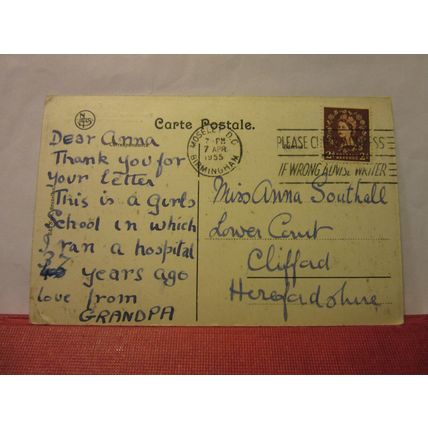 Carte Postale.
MOSELEY B.O
7-PM
7 APR
1955
BIRMINGHAM
PLEASE
ESS
IF WRONG ADVISE WRITER
Dear Anna
Thank you for
your letter
This is a Girls
School in which
I ran a hospital
37 years ago
love from
GRANDPA
Miss Anna Southall
Lower Court
Clifford
Herefordshire